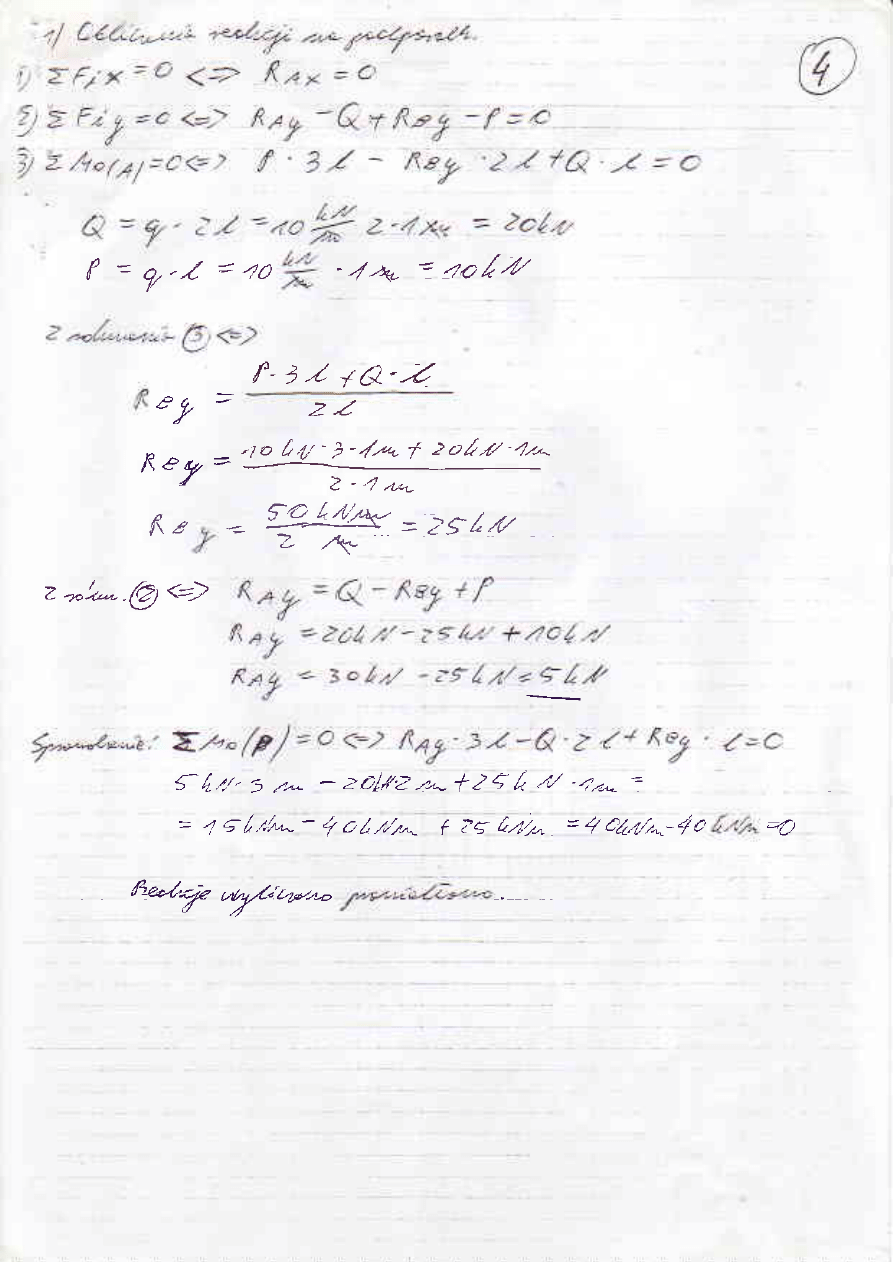 1) Obliczenie reakcji na podporach.
4
1) ΣFix = 0 <=> RAx = 0
2) ΣFiy = 0 <=> RAy - Q + RBy - P = 0
3) ΣMo(A) = 0 <=> P · 3l - RBy · 2l + Q · l = 0
Q = q · 2l = 10 kN/m 2 · 1m = 20kN
P = q · l = 10 kN/m · 1m = 10kN
Z równania (3) <=>
RBy = (P · 3l + Q · l) / 2l
RBy = (10kN · 3 · 1m + 20kN · 1m) / 2 · 1m
RBy = 50kNm / 2 m = 25kN
Z równ. (2) <=> RAy = Q - RBy + P
RAy = 20kN - 25kN + 10kN
RAy = 30kN - 25kN = 5kN
Sprawdzenie: ΣMo(P) = 0 <=> RAy · 3l - Q · 2l + RBy · l = 0
5kN · 3m - 20kN · 2m + 25kN · 1m =
= 15kNm - 40kNm + 25kNm = 40kNm - 40kNm = 0
Reakcje wyliczono prawidłowo.